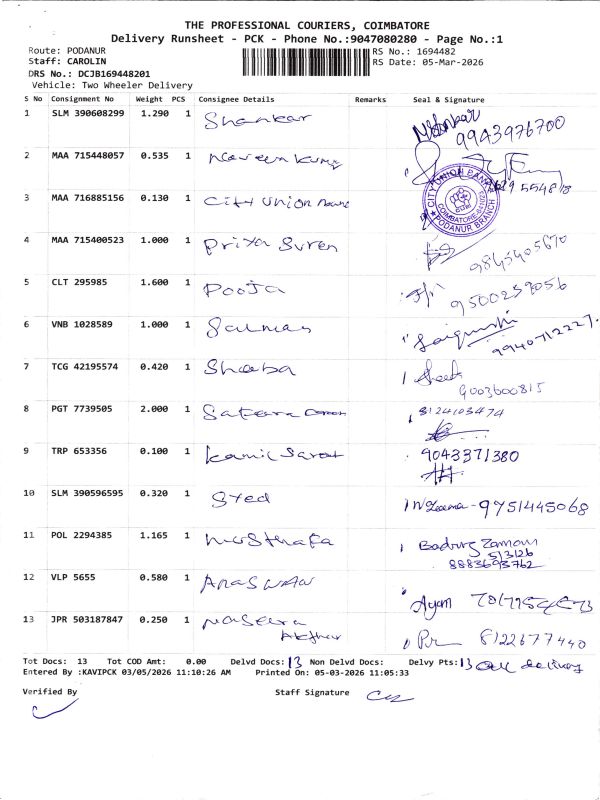 THE PROFESSIONAL COURIERS, COIMBATORE
Delivery Runsheet - PCK - Phone No.:9047080280 - Page No.:1
Route: PODANUR RS No.: 1694482
Staff: CAROLIN RS Date: 05-Mar-2026
DRS No.: DCJB169448201
Vehicle: Two Wheeler Delivery
S No Consignment No Weight PCS Consignee Details Remarks Seal & Signature
1 SLM 390608299 1.290 1 Shankar 9943976700
2 MAA 715448057 0.535 1 Naveen Kumar
3 MAA 716885156 0.130 1 City Union CITY UNION BANK COIMBATORE PODANUR BRANCH
4 MAA 715400523 1.000 1 Priya Suren 9843405670
5 CLT 295985 1.600 1 Pooja 9500259056
6 VNB 1028589 1.000 1 9940712227
7 TCG 42195574 0.420 1 Sheeba 9003600815
8 PGT 7739505 2.000 1 8124103474
9 TRP 653356 0.100 1 9043371380
10 SLM 390596595 0.320 1 Syed 9751445068
11 POL 2294385 1.165 1 Musthafa
5/3/26
8883693762
12 VLP 5655 0.580 1
13 JPR 503187847 0.250 1 Naseera 8122677440
Akthar
Tot Docs: 13 Tot COD Amt: 0.00 Delvd Docs: 13 Non Delvd Docs: Delvy Pts: 13 All delivery
Entered By :KAVIPCK 03/05/2026 11:10:26 AM Printed On: 05-03-2026 11:05:33
Verified By Staff Signature